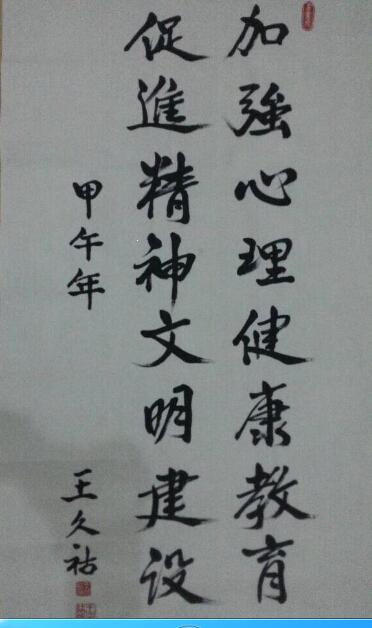 加強心理健康教育
促進精神文明建设
甲午年
王久祜